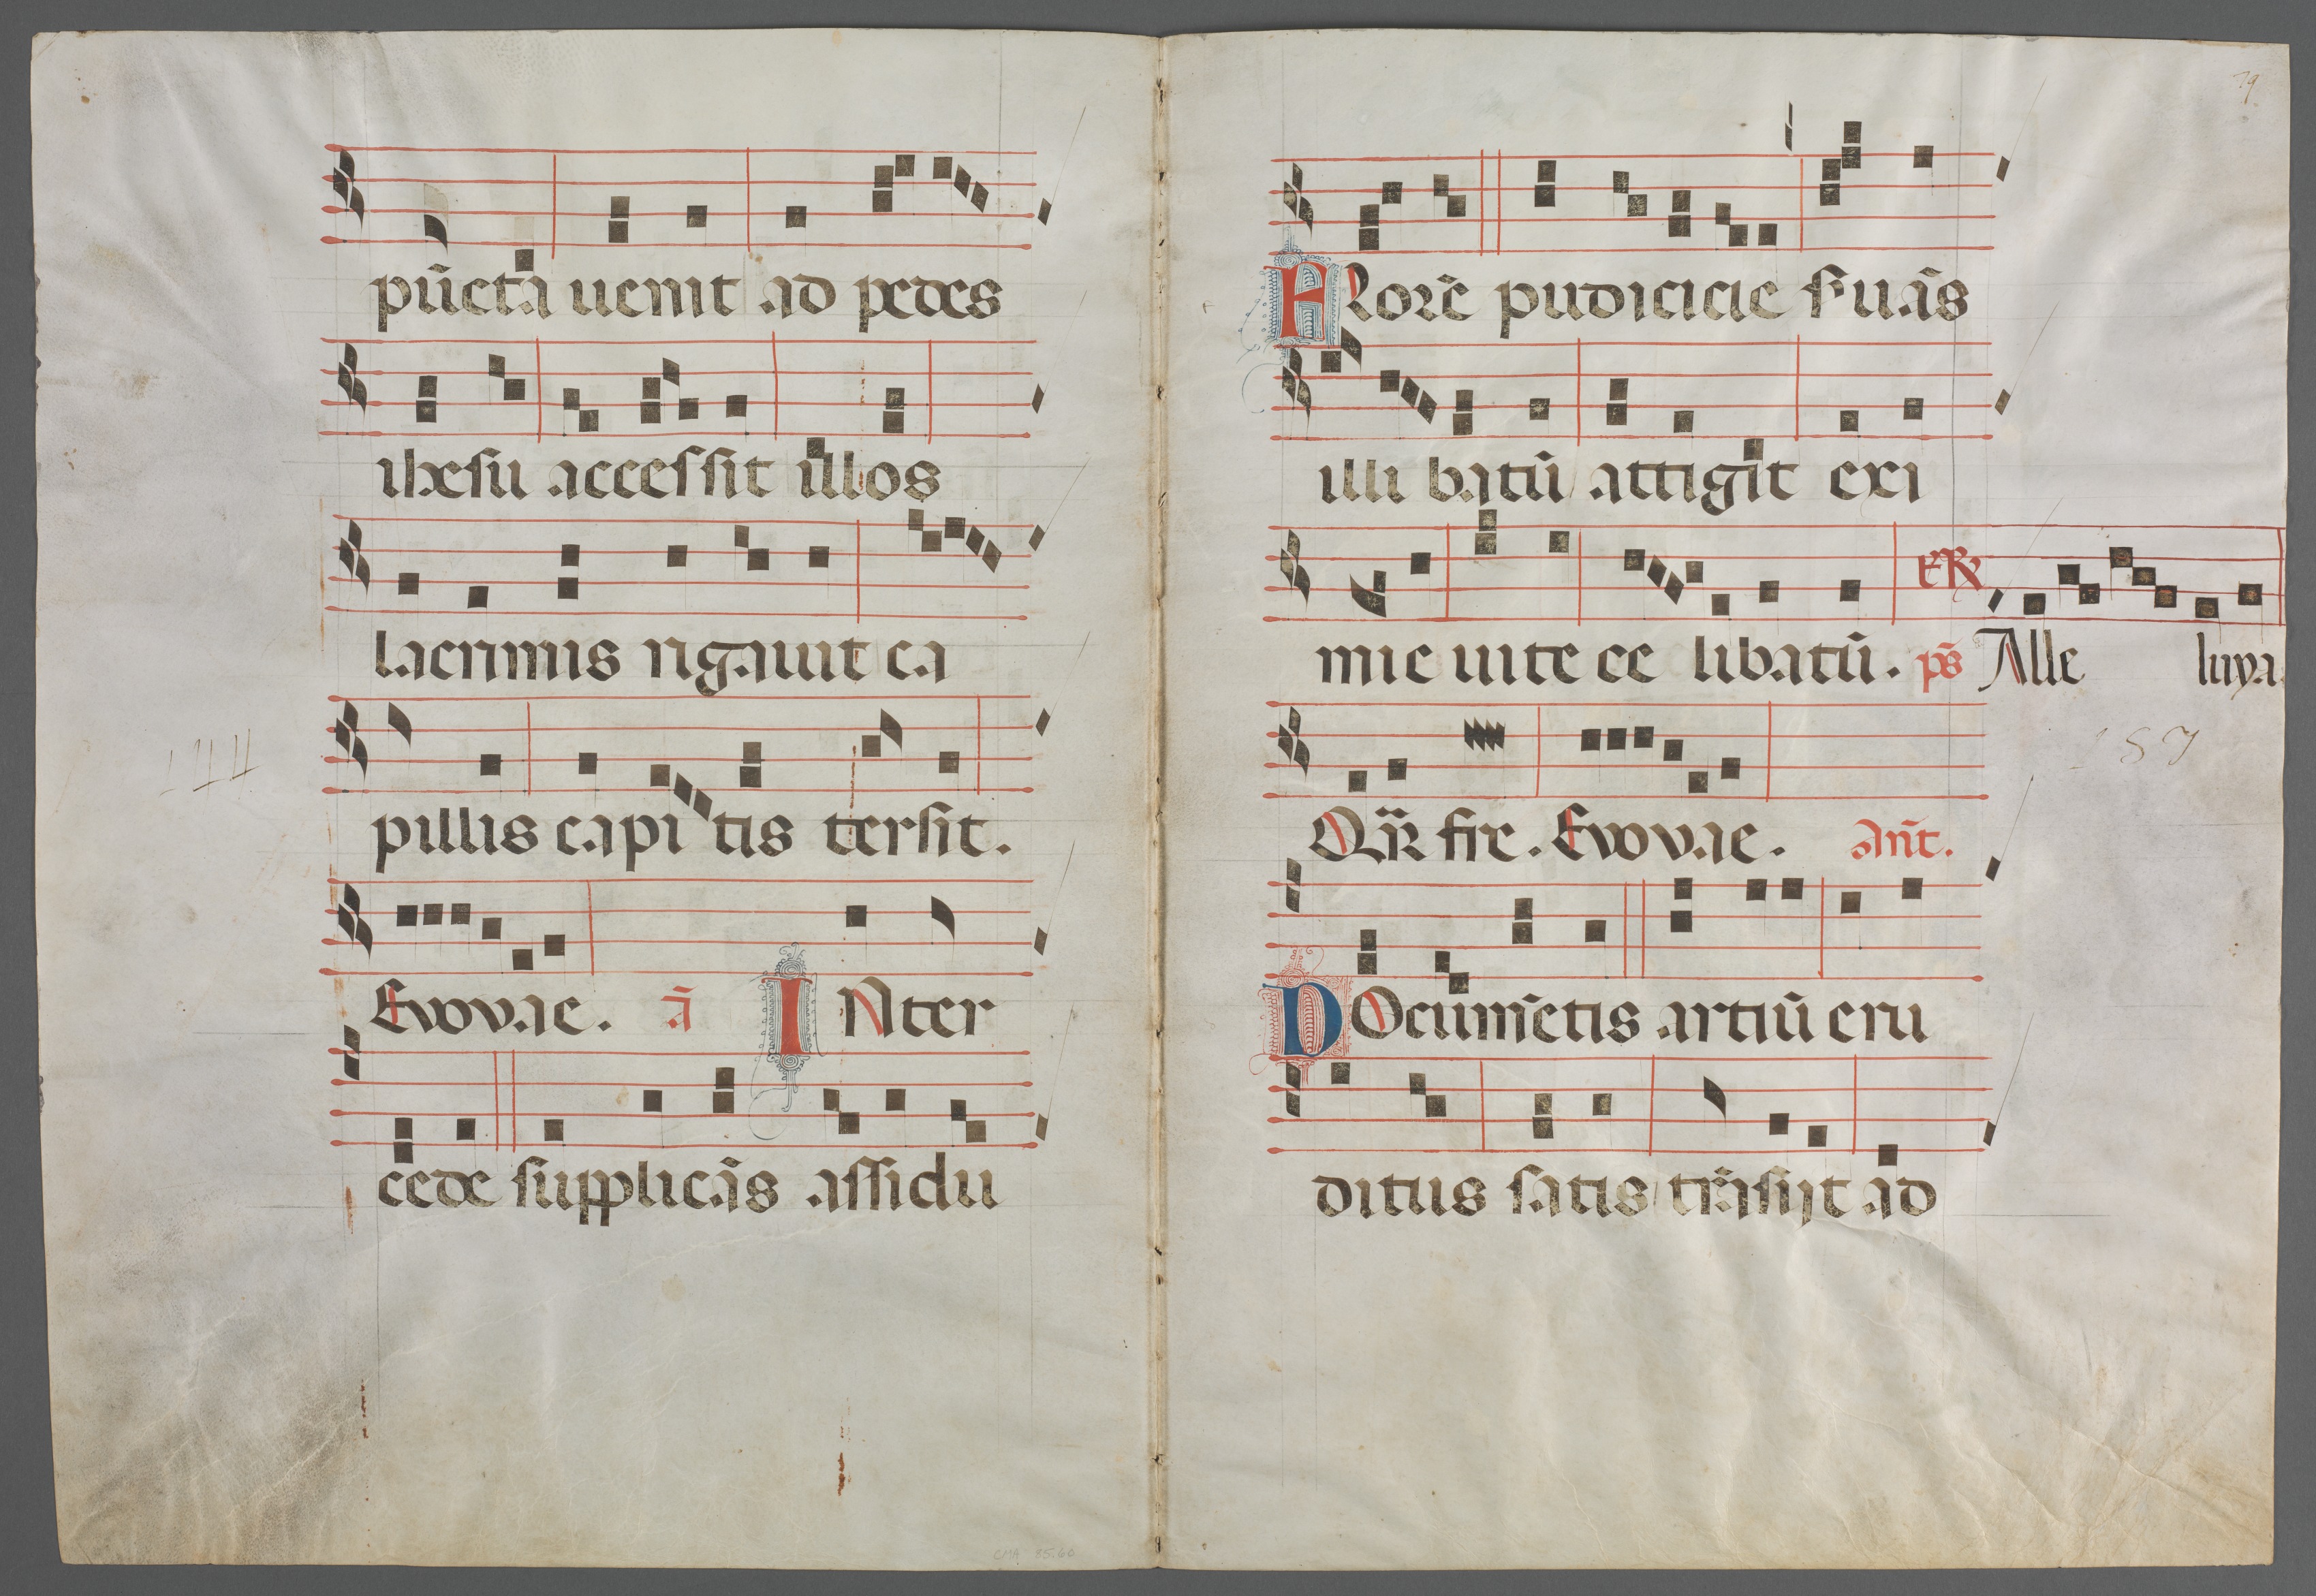 pūcta uenit ad pedes
ihesu accessit illos
lacrimis rigauit ca
pillis capi tis tersit.
Evovae. ā INter
cede supplicās assidu
CMA
79
FLorē pudicicie seruās
illi batū attigit exi
mie uite ce libatū. ps̄ Alle luya.
fre. Evovae. Ant̄.
DOcumētis artiū eru
ditus satis trāsijt ad